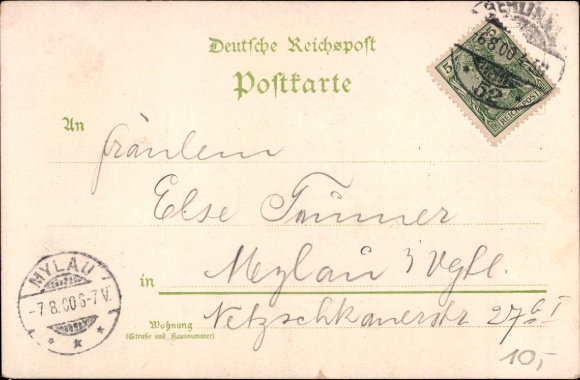 Deutsche Reichspost
Postkarte
BERLIN
6.8.00
52
5
REICHSPOST
An
Fräulein
Else
in Mylau i/ Vgtl.
Wohnung
(Straße und Hausnummer)
Netzschkauerstr 27 b I
MYLAU
-7.8.00 6-7 V.
* * *
10,-